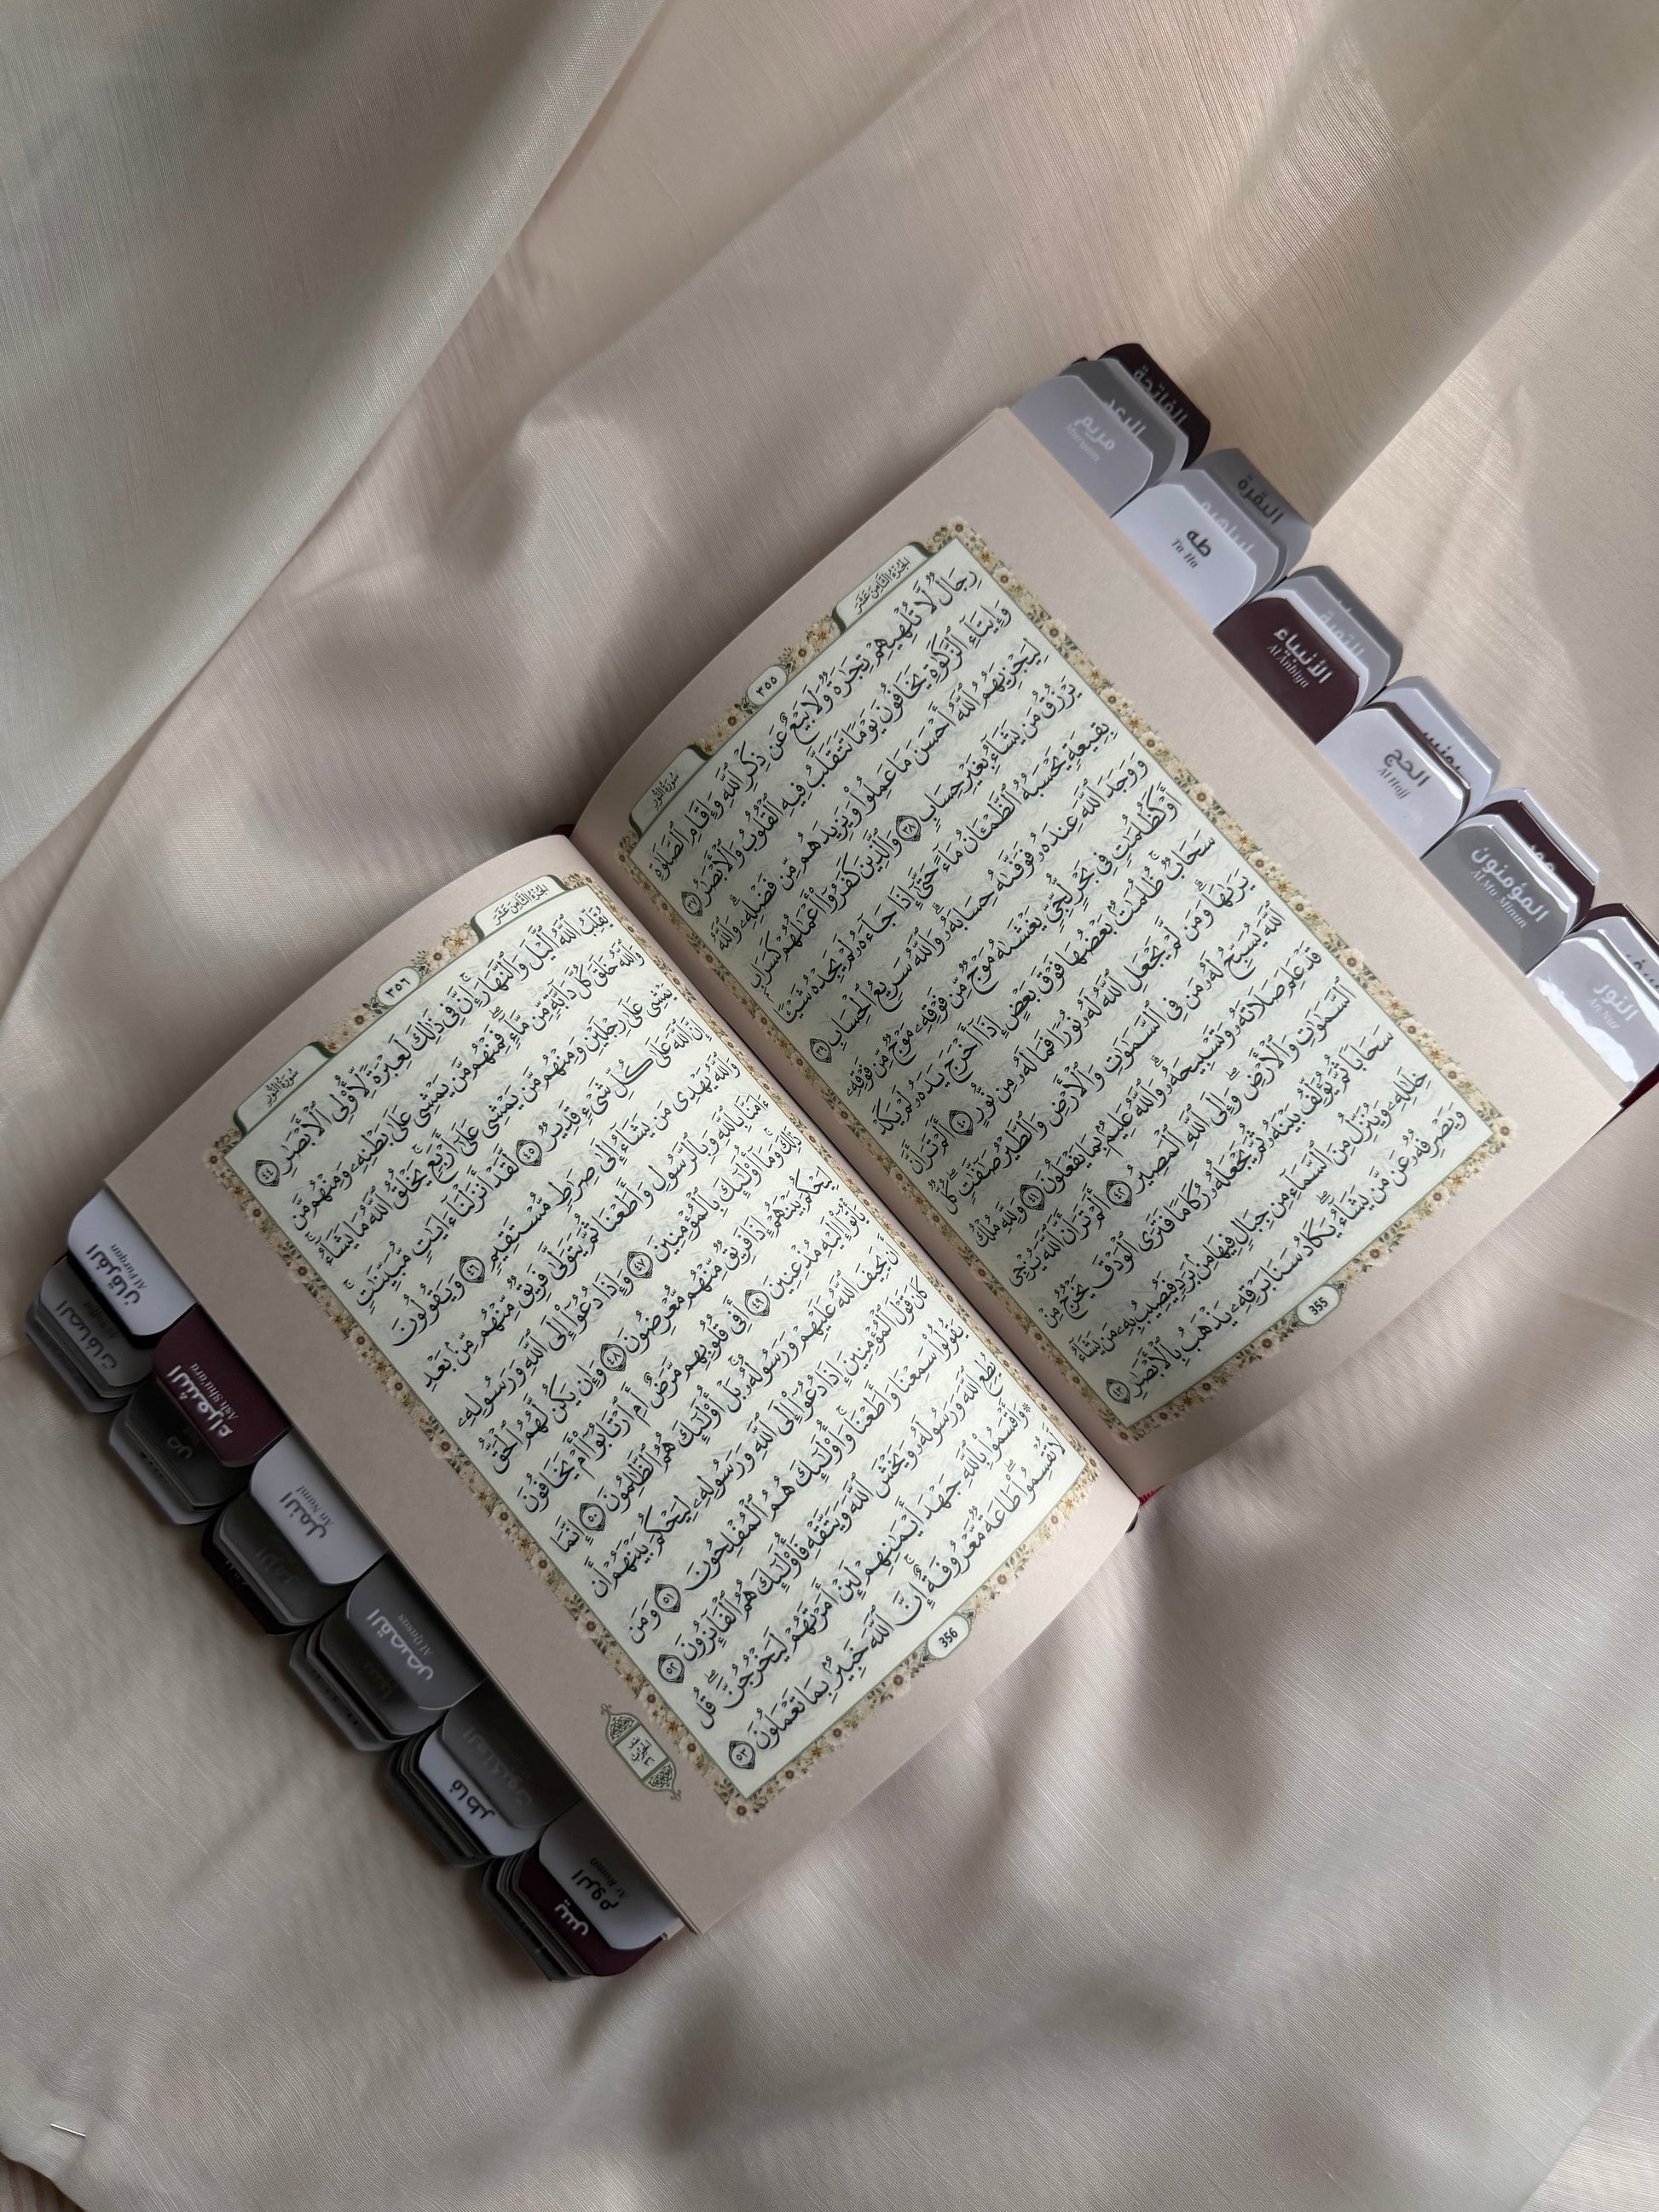 الجزء الثامن عشر
٣٥٥
سورة النور
رِجَالٌ لَّا تُلْهِيهِمْ تِجَٰرَةٌ وَلَا بَيْعٌ عَن ذِكْرِ ٱللَّهِ وَإِقَامِ ٱلصَّلَوٰةِ
وَإِيتَآءِ ٱلزَّكَوٰةِ يَخَافُونَ يَوْمًا تَتَقَلَّبُ فِيهِ ٱلْقُلُوبُ وَٱلْأَبْصَٰرُ ٣٧
لِيَجْزِيَهُمُ ٱللَّهُ أَحْسَنَ مَا عَمِلُوا۟ وَيَزِيدَهُم مِّن فَضْلِهِۦ وَٱللَّهُ
يَرْزُقُ مَن يَشَآءُ بِغَيْرِ حِسَابٍ ٣٨ وَٱلَّذِينَ كَفَرُوٓا۟ أَعْمَٰلُهُمْ كَسَرَابٍۭ
بِقِيعَةٍ يَحْسَبُهُ ٱلظَّمْـَٔانُ مَآءً حَتَّىٰٓ إِذَا جَآءَهُۥ لَمْ يَجِدْهُ شَيْـًٔا
وَوَجَدَ ٱللَّهَ عِندَهُۥ فَوَفَّىٰهُ حِسَابَهُۥ وَٱللَّهُ سَرِيعُ ٱلْحِسَابِ ٣٩
أَوْ كَظُلُمَٰتٍ فِى بَحْرٍ لُّجِّىٍّ يَغْشَىٰهُ مَوْجٌ مِّن فَوْقِهِۦ مَوْجٌ مِّن فَوْقِهِۦ
سَحَابٌ ظُلُمَٰتٌۢ بَعْضُهَا فَوْقَ بَعْضٍ إِذَآ أَخْرَجَ يَدَهُۥ لَمْ يَكَدْ
يَرَىٰهَا وَمَن لَّمْ يَجْعَلِ ٱللَّهُ لَهُۥ نُورًا فَمَا لَهُۥ مِن نُّورٍ ٤٠ أَلَمْ تَرَ أَنَّ
ٱللَّهَ يُسَبِّحُ لَهُۥ مَن فِى ٱلسَّمَٰوَٰتِ وَٱلْأَرْضِ وَٱلطَّيْرُ صَٰٓفَّٰتٍ كُلٌّ
قَدْ عَلِمَ صَلَاتَهُۥ وَتَسْبِيحَهُۥ وَٱللَّهُ عَلِيمٌۢ بِمَا يَفْعَلُونَ ٤١ وَلِلَّهِ مُلْكُ
ٱلسَّمَٰوَٰتِ وَٱلْأَرْضِ وَإِلَى ٱللَّهِ ٱلْمَصِيرُ ٤٢ أَلَمْ تَرَ أَنَّ ٱللَّهَ يُزْجِى
سَحَابًا ثُمَّ يُؤَلِّفُ بَيْنَهُۥ ثُمَّ يَجْعَلُهُۥ رُكَامًا فَتَرَى ٱلْوَدْقَ يَخْرُجُ مِنْ
خِلَٰلِهِۦ وَيُنَزِّلُ مِنَ ٱلسَّمَآءِ مِن جِبَالٍ فِيهَا مِنۢ بَرَدٍ فَيُصِيبُ بِهِۦ مَن يَشَآءُ
وَيَصْرِفُهُۥ عَن مَّن يَشَآءُ يَكَادُ سَنَا بَرْقِهِۦ يَذْهَبُ بِٱلْأَبْصَٰرِ ٤٣
355
الجزء الثامن عشر
٣٥٦
سورة النور
يُقَلِّبُ ٱللَّهُ ٱلَّيْلَ وَٱلنَّهَارَ إِنَّ فِى ذَٰلِكَ لَعِبْرَةً لِّأُو۟لِى ٱلْأَبْصَٰرِ ٤٤
وَٱللَّهُ خَلَقَ كُلَّ دَآبَّةٍ مِّن مَّآءٍ فَمِنْهُم مَّن يَمْشِى عَلَىٰ بَطْنِهِۦ وَمِنْهُم مَّن
يَمْشِى عَلَىٰ رِجْلَيْنِ وَمِنْهُم مَّن يَمْشِى عَلَىٰٓ أَرْبَعٍ يَخْلُقُ ٱللَّهُ مَا يَشَآءُ
إِنَّ ٱللَّهَ عَلَىٰ كُلِّ شَىْءٍ قَدِيرٌ ٤٥ لَّقَدْ أَنزَلْنَآ ءَايَٰتٍ مُّبَيِّنَٰتٍ
وَٱللَّهُ يَهْدِى مَن يَشَآءُ إِلَىٰ صِرَٰطٍ مُّسْتَقِيمٍ ٤٦ وَيَقُولُونَ
ءَامَنَّا بِٱللَّهِ وَبِٱلرَّسُولِ وَأَطَعْنَا ثُمَّ يَتَوَلَّىٰ فَرِيقٌ مِّنْهُم مِّنۢ بَعْدِ
ذَٰلِكَ وَمَآ أُو۟لَٰٓئِكَ بِٱلْمُؤْمِنِينَ ٤٧ وَإِذَا دُعُوٓا۟ إِلَى ٱللَّهِ وَرَسُولِهِۦ
لِيَحْكُمَ بَيْنَهُمْ إِذَا فَرِيقٌ مِّنْهُم مُّعْرِضُونَ ٤٨ وَإِن يَكُن لَّهُمُ ٱلْحَقُّ
يَأْتُوٓا۟ إِلَيْهِ مُذْعِنِينَ ٤٩ أَفِى قُلُوبِهِم مَّرَضٌ أَمِ ٱرْتَابُوٓا۟ أَمْ يَخَافُونَ
أَن يَحِيفَ ٱللَّهُ عَلَيْهِمْ وَرَسُولُهُۥ بَلْ أُو۟لَٰٓئِكَ هُمُ ٱلظَّٰلِمُونَ ٥٠ إِنَّمَا
كَانَ قَوْلَ ٱلْمُؤْمِنِينَ إِذَا دُعُوٓا۟ إِلَى ٱللَّهِ وَرَسُولِهِۦ لِيَحْكُمَ بَيْنَهُمْ أَن
يَقُولُوا۟ سَمِعْنَا وَأَطَعْنَا وَأُو۟لَٰٓئِكَ هُمُ ٱلْمُفْلِحُونَ ٥١ وَمَن
يُطِعِ ٱللَّهَ وَرَسُولَهُۥ وَيَخْشَ ٱللَّهَ وَيَتَّقْهِ فَأُو۟لَٰٓئِكَ هُمُ ٱلْفَآئِزُونَ ٥٢
۞ وَأَقْسَمُوا۟ بِٱللَّهِ جَهْدَ أَيْمَٰنِهِمْ لَئِنْ أَمَرْتَهُمْ لَيَخْرُجُنَّ قُل
لَّا تُقْسِمُوا۟ طَاعَةٌ مَّعْرُوفَةٌ إِنَّ ٱللَّهَ خَبِيرٌۢ بِمَا تَعْمَلُونَ ٥٣
356
الفاتحة
الرعد
مريم
Maryam
البقرة
إبراهيم
طه
Ta Ha
التوبة
الأنبياء
Al Anbiya
يونس
الحج
Al Hajj
هود
المؤمنون
Al Mu'Minun
يوسف
النور
An Nur
الفرقان
Al Furqan
الصافات
الشعراء
Ash Shu'ara
ص
النمل
An Naml
الزمر
القصص
Al Qasas
سبأ
العنكبوت
فاطر
الروم
Ar Rum
يس